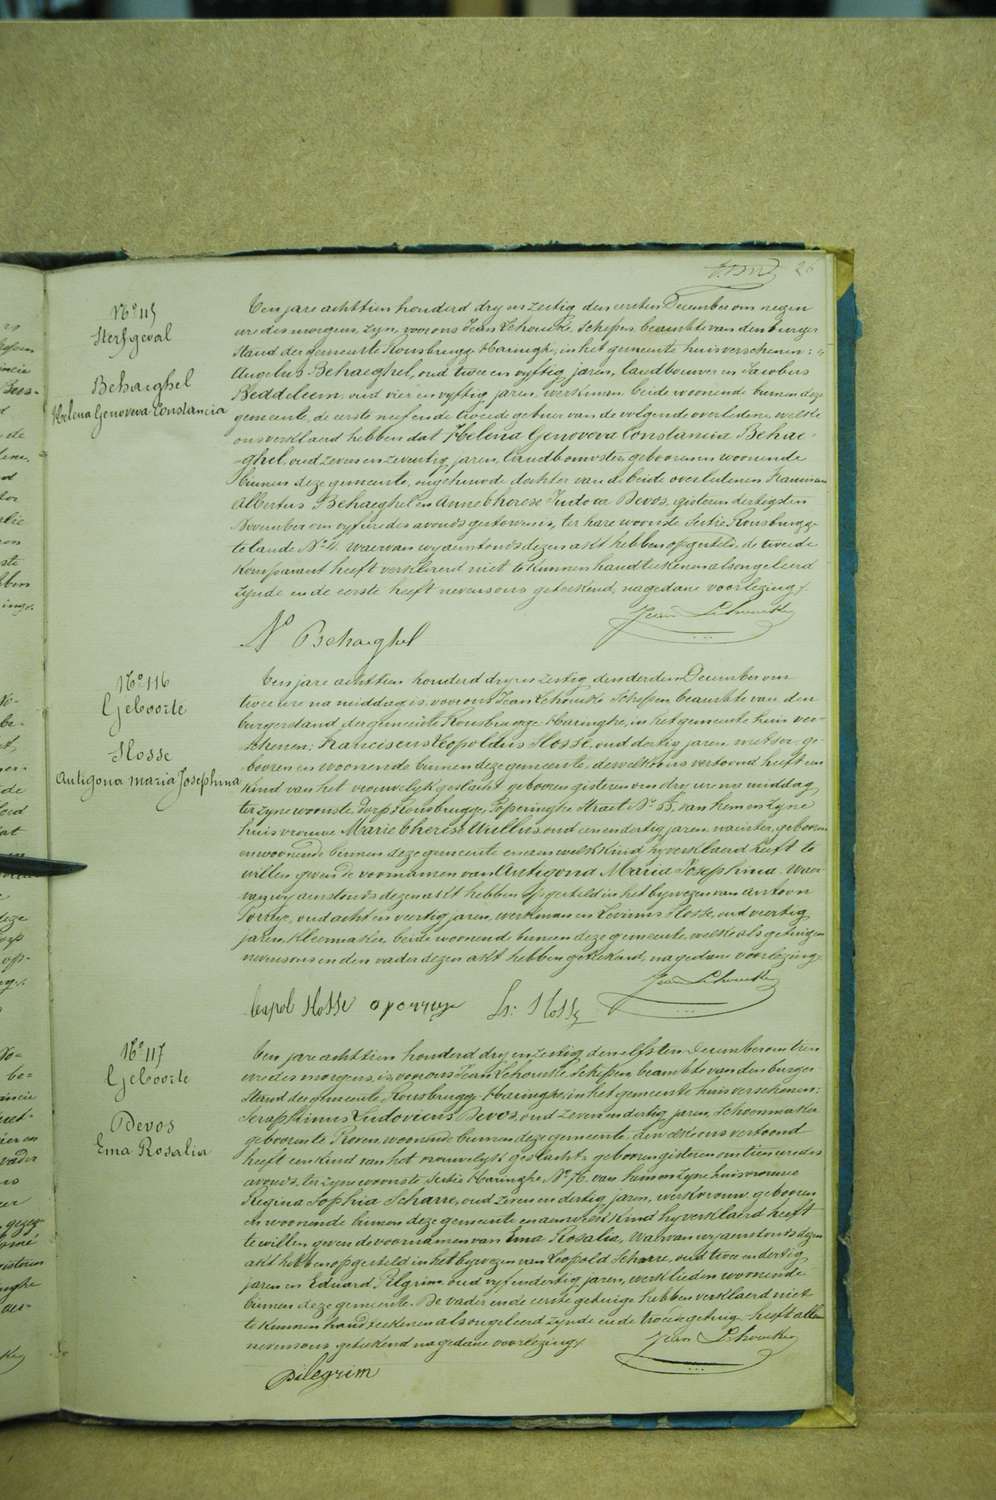 20
N° 115
Sterfgeval
Behaeghel
Helena Genoveva Constancia
Ten jare achttien honderd dry en zestig den eersten December om negen
ure des morgens, zyn, voor ons Jean Lehouck, Schepen beambte van den burger
stand der gemeente Rousbrugge-Haringhe, in het gemeente huis verschenen:
Behaeghel, oud twee en vyftig jaren, landbouwer en Jacobus
Beddeleem, oud vier en vyftig jaren, werkman beide woonende binnen deze
gemeente, de eerste neef en de tweede gebuer van de volgende overledene, welke
ons verklaerd hebben dat Helena Genoveva Constancia Behae-
-ghel, oud zeven en zeventig jaren, landbouwster, gebooren en woonende
binnen deze gemeente, ongehuwde dochter van de beide overledenen
Albertus Behaeghel en Anne Therese Devos, gisteren dertigsten
November om vyf ure des avonds gestorven is, ter hare woonste Sectie Rousbrugge
te lande N° 4. Waervan wy aenstonds dezen akt hebben opgesteld, de tweede
komparant heeft verklaerd niet te kunnen handteekenen als ongeleerd
zynde en de eerste heeft nevens ons geteekend, na gedane voorlezing.
Behaeghel
Jean Lehouck
N° 116
Geboorte
Hosse
Antigona Maria Josephina
Ten jare achttien honderd dry en zestig den derden December om
twee ure na middag is, voor ons Jean Lehouck Schepen beambte van den
burgerstand der gemeente Rousbrugge-Haringhe, in het gemeente huis ver-
schenen; Franciscus Leopoldus Hosse, oud dertig jaren, metser, ge-
booren en woonende binnen deze gemeente, dewelke ons vertoond heeft een
kind van het vrouwelyk geslacht gebooren gisteren om dry ure na middag
ter zyne woonste, dorp Rousbrugge, Poperinghe Straet N° 53, van hem en zyne
huisvrouwe Marie Therese Wullus, oud een en dertig jaren, gebooren
en woonende binnen deze gemeente en aen welk kind hy verklaerd heeft te
willen geven de voornamen van Antigona Maria Josephina. Waer-
van wy aenstonds dezen akt hebben opgesteld in het bywezen van Antoon
Porrye, oud acht en veertig jaren, werkman en Livinus Hosse, oud veertig
jaren, kleermaker, beide woonende binnen deze gemeente, welke als getuigen
nevens ons en den vader dezen akt hebben geteekend, na gedane voorlezing.
Leopol Hosse a porrye Li: Hosse
Jean Lehouck
N° 117
Geboorte
Devos
Ema Rosalia
Ten jare achttien honderd dry en zestig den elfsten December om tien
ure des morgens, is voor ons Jean Lehouck Schepen beambte van den burger
stand der gemeente Rousbrugge-Haringhe, in het gemeente huis verschenen:
Seraphinus Ludovicus Devos, oud zeven en dertig jaren, schoenmaker
gebooren te Roren, woonende binnen deze gemeente, dewelke ons vertoond
heeft een kind van het vrouwelyk geslacht, gebooren gisteren om tien ure des
avonds, ter zyne woonste, Sectie Haringhe, N° 76, van hem en zyne huisvrouwe
Regina Sophia Scharre, oud zeven en dertig jaren, werkvrouw, gebooren
en woonende binnen deze gemeente en aen welk kind hy verklaerd heeft
te willen geven de voornamen van Ema Rosalia. Waervan wy aenstonds dezen
akt hebben opgesteld in het bywezen van Leopold Scharre, oud twee en dertig
jaren en Eduard Pilgrim, oud vyf en dertig jaren, werklieden woonende
binnen deze gemeente. De vader en de eerste getuige hebben verklaerd niet
te kunnen handteekenen als ongeleerd zynde en de tweede getuige heeft alleen
nevens ons geteekend na gedane voorlezing.
Jean Lehouck
pilegrim